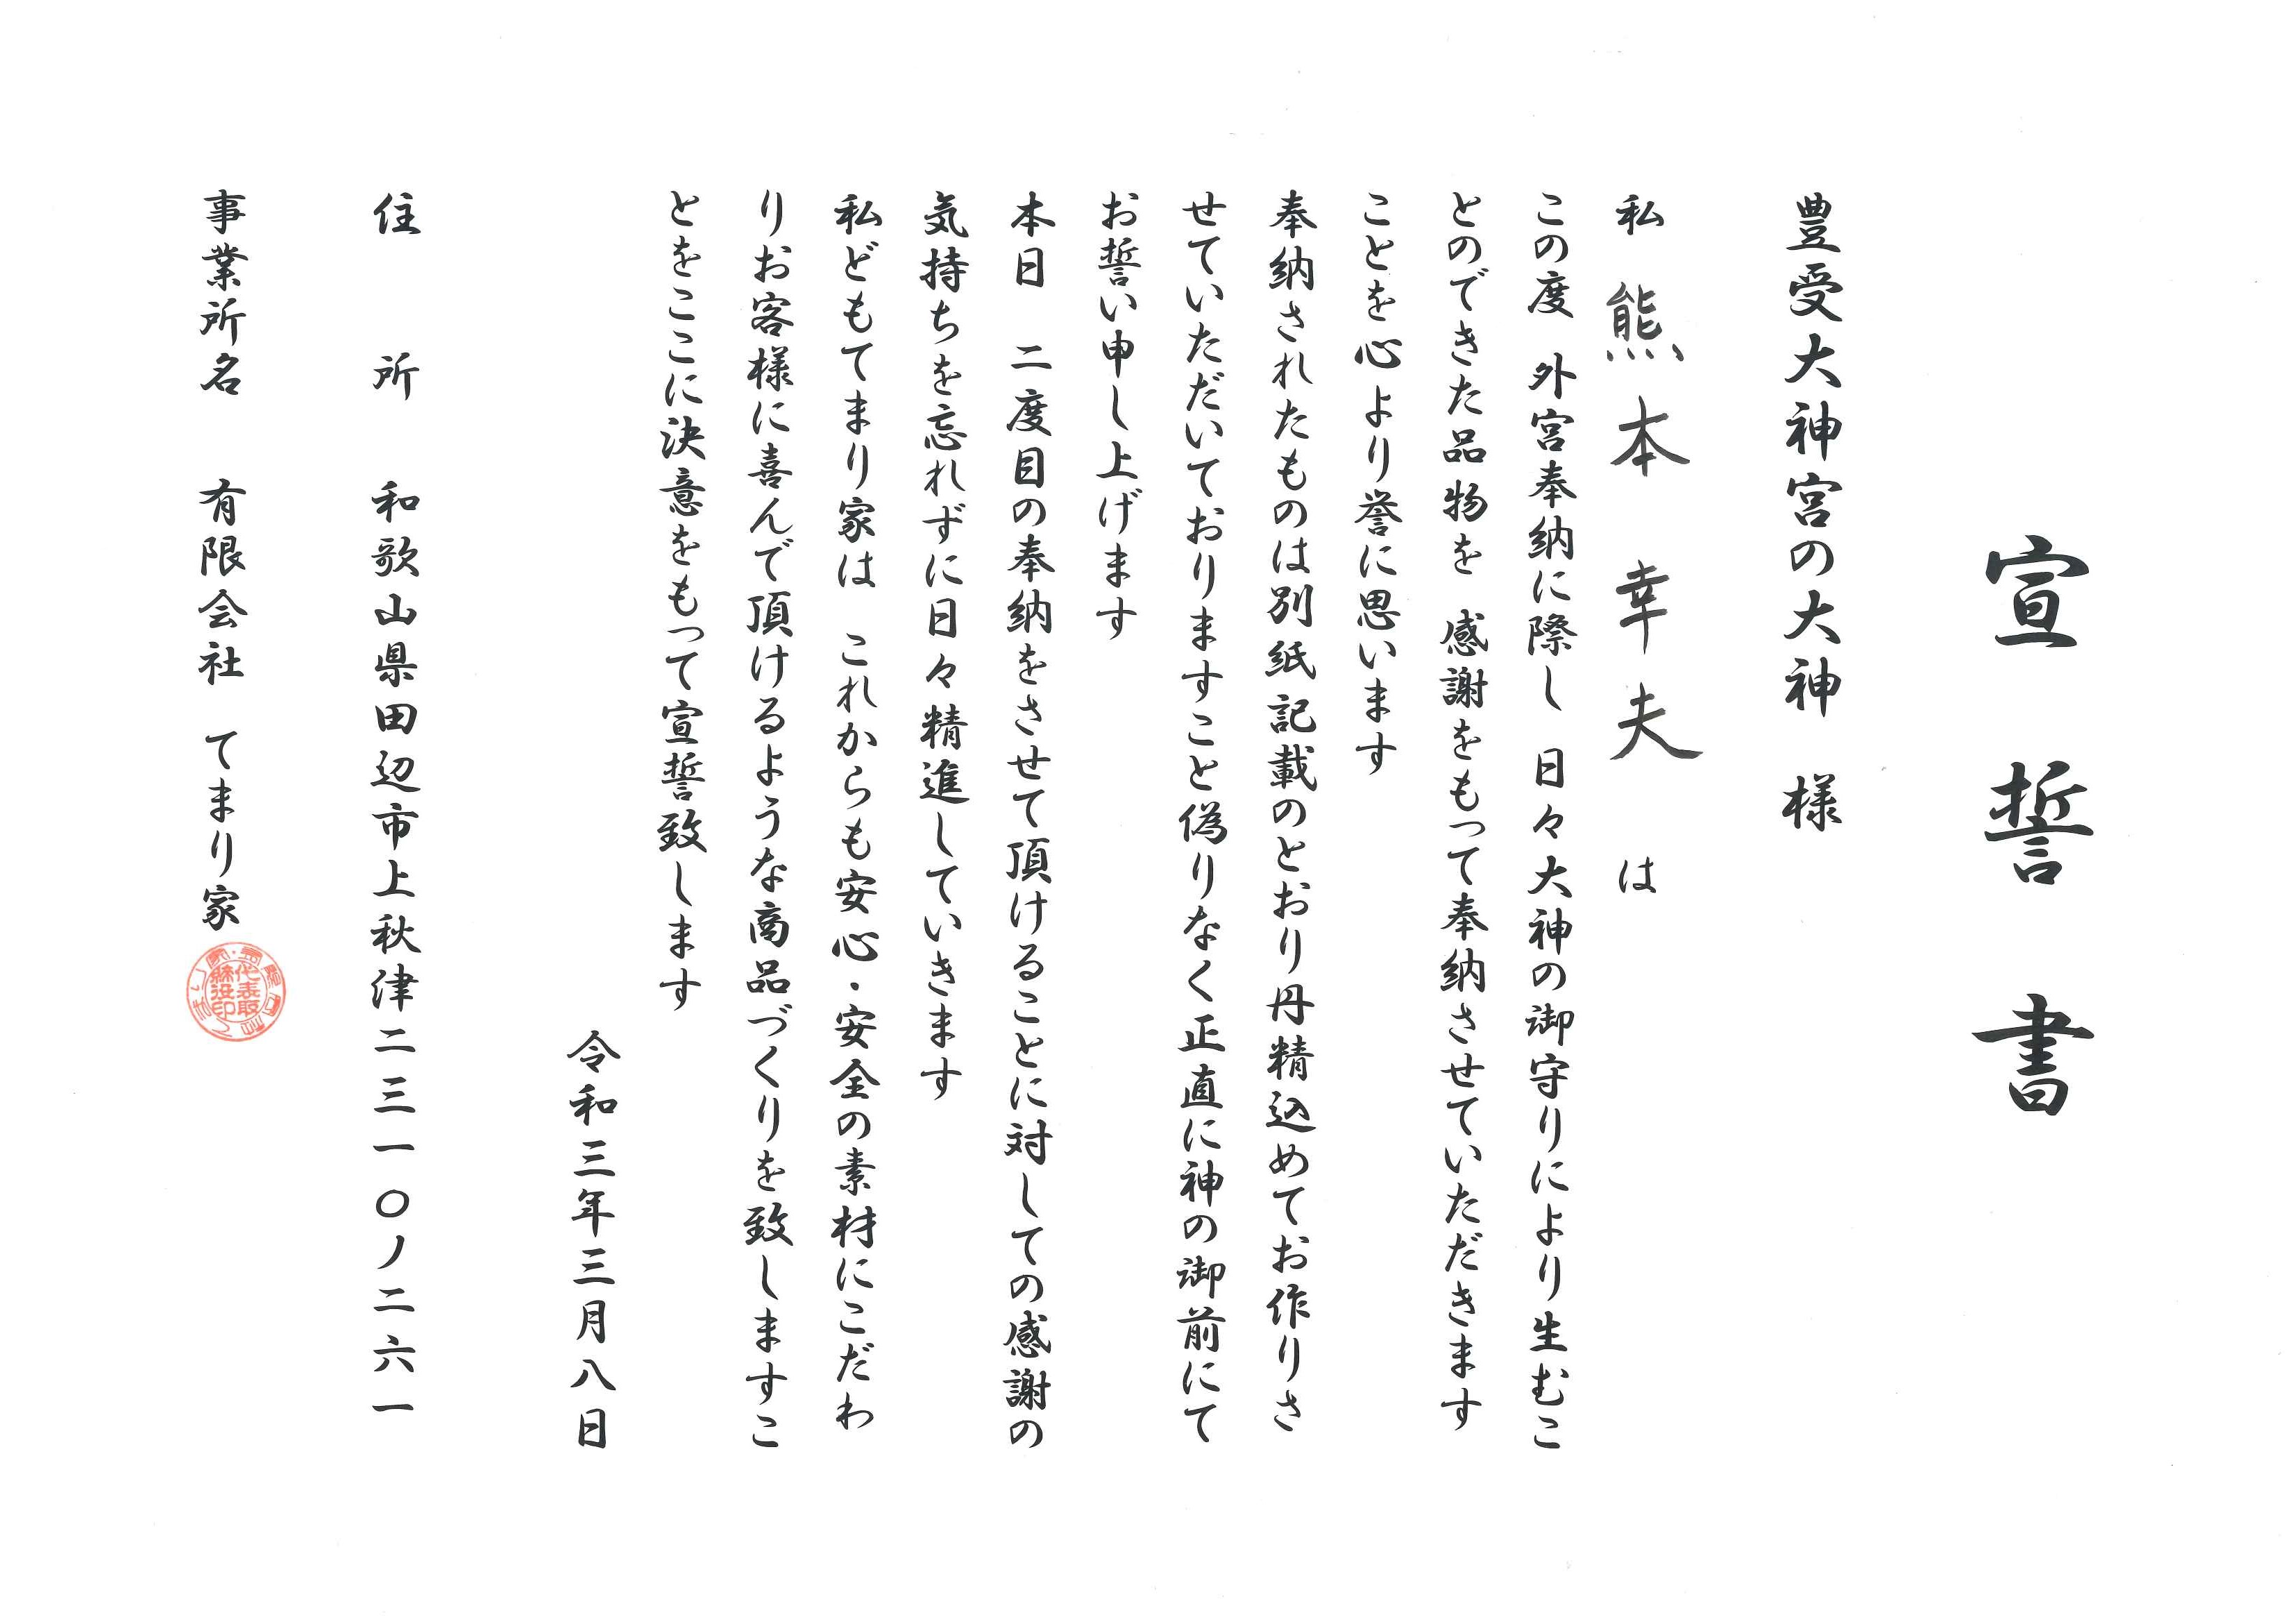 宣誓書
豊受大神宮の大神 様
私 熊本 幸夫 は
この度 外宮奉納に際し 日々大神の御守りにより生むこ
とのできた品物を 感謝をもって奉納させていただきます
ことを心より誉に思います
奉納されたものは別紙記載のとおり丹精込めてお作りさ
せていただいておりますこと偽りなく正直に神の御前にて
お誓い申し上げます
本日 二度目の奉納をさせて頂けることに対しての感謝の
気持ちを忘れずに日々精進していきます
私どもてまり家は これからも安心・安全の素材にこだわ
りお客様に喜んで頂けるような商品づくりを致しますこ
とをここに決意をもって宣誓致します
令和三年三月八日
住所 和歌山県田辺市上秋津二三一〇ノ二六一
事業所名 有限会社 てまり家
代表取
締役印